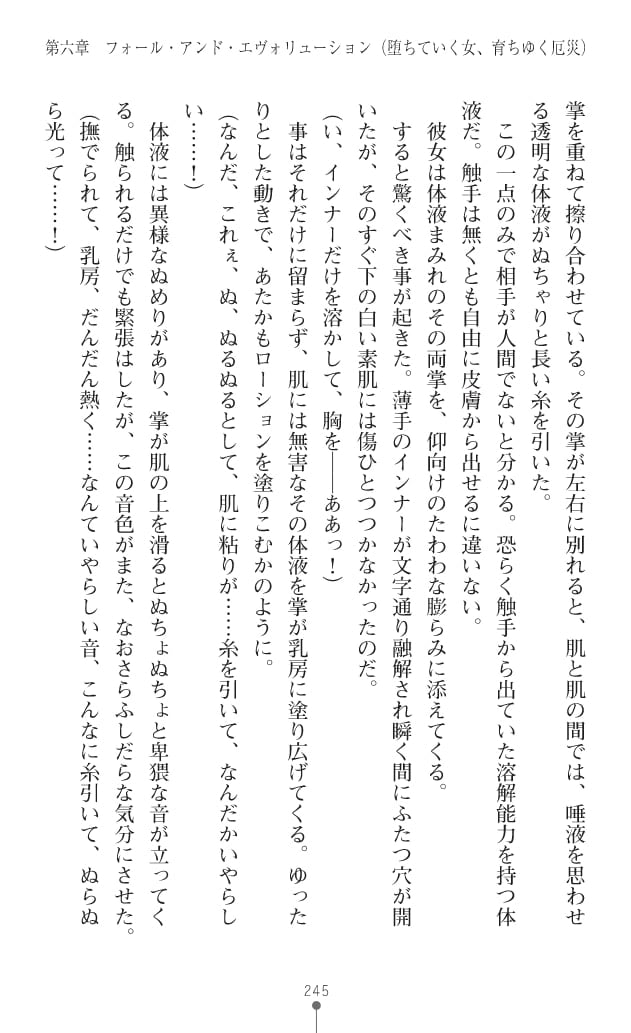 第六章　フォール・アンド・エヴォリューション（堕ちていく女、育ちゆく厄災）
掌を重ねて擦り合わせている。その掌が左右に別れると、肌と肌の間では、唾液を思わせ
る透明な体液がぬちゃりと長い糸を引いた。
　この一点のみで相手が人間でないと分かる。恐らく触手から出ていた溶解能力を持つ体
液だ。触手は無くとも自由に皮膚から出せるに違いない。
　彼女は体液まみれのその両掌を、仰向けのたわわな膨らみに添えてくる。
　すると驚くべき事が起きた。薄手のインナーが文字通り融解され瞬く間にふたつ穴が開
いたが、そのすぐ下の白い素肌には傷ひとつつかなかったのだ。
（い、インナーだけを溶かして、胸を――ああっ！）
　事はそれだけに留まらず、肌には無害なその体液を掌が乳房に塗り広げてくる。ゆった
りとした動きで、あたかもローションを塗りこむかのように。
（なんだ、これぇ、ぬ、ぬるぬるとして、肌に粘りが……糸を引いて、なんだかいやらし
い……！）
　体液には異様なぬめりがあり、掌が肌の上を滑るとぬちょぬちょと卑猥な音が立ってく
る。触られるだけでも緊張はしたが、この音色がまた、なおさらふしだらな気分にさせた。
（撫でられて、乳房、だんだん熱く……なんていやらしい音、こんなに糸引いて、ぬらぬ
ら光って……！）
245